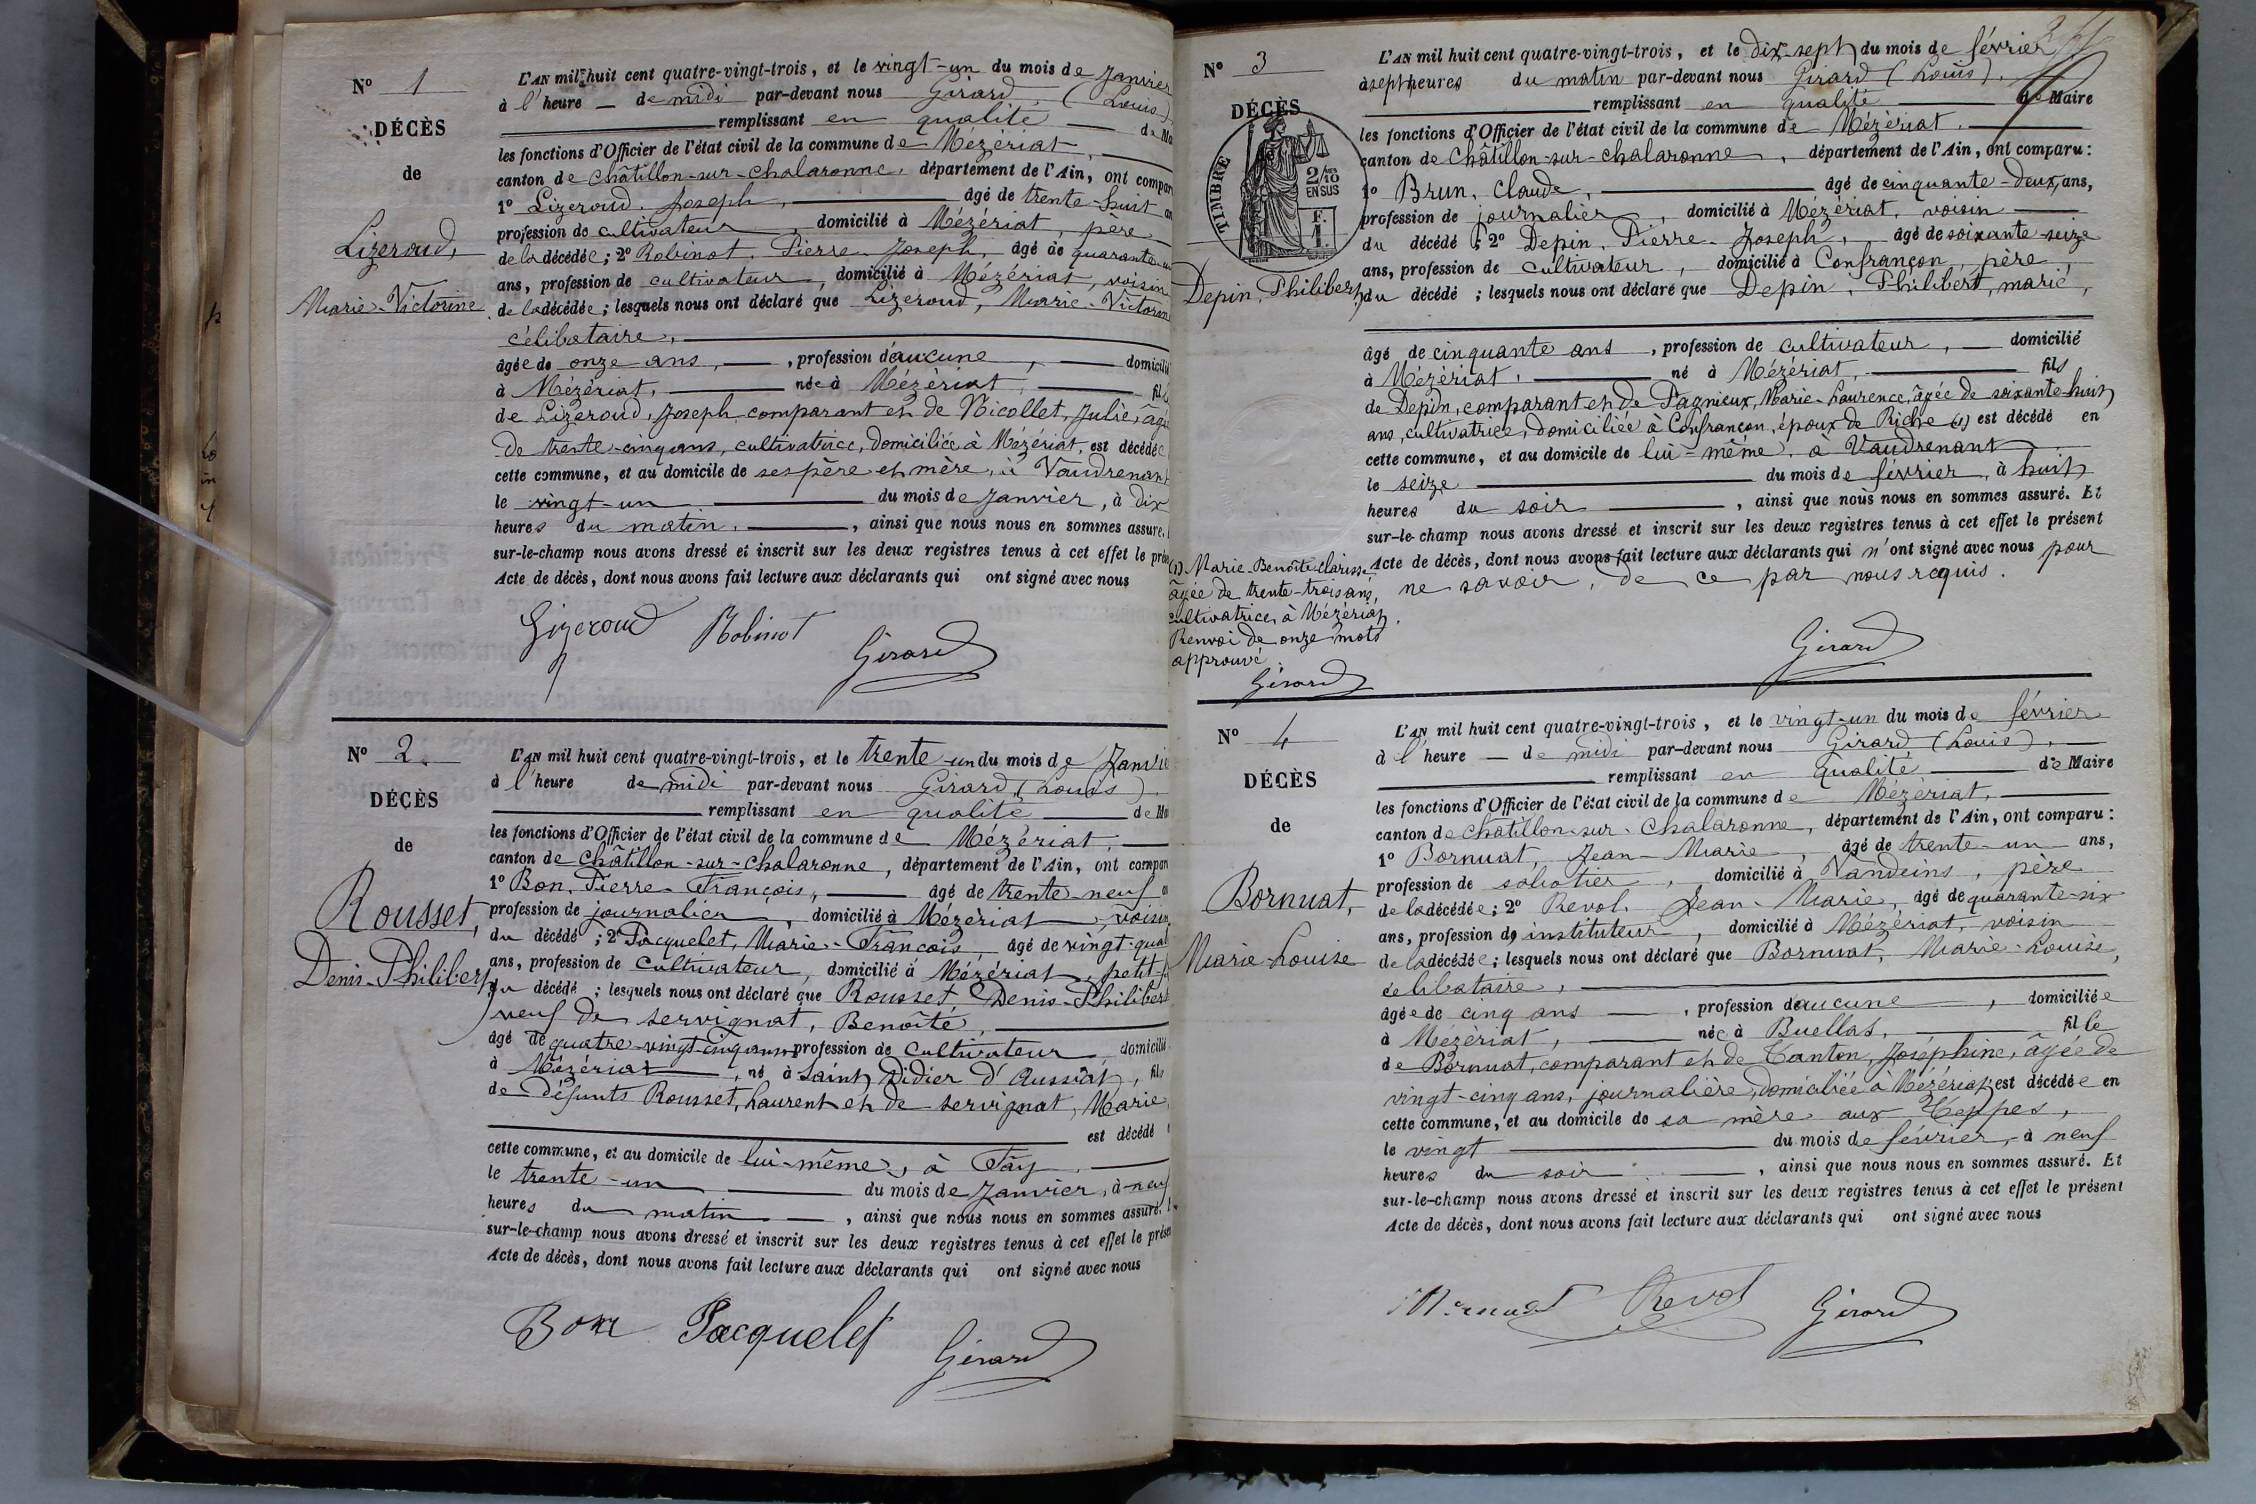 N° 1
DÉCÈS
de
Lizeroud,
Marie-Victorine
L'AN mil huit cent quatre-vingt-trois, et le vingt-un du mois de Janvier
à l'heure — de midi par-devant nous Girard, (Louis),
remplissant en qualité de Ma
les fonctions d'Officier de l'état civil de la commune de Mézériat,
canton de Châtillon-sur-Chalaronne, département de l'Ain, ont compar
1° Lizeroud, Joseph, âgé de trente-huit an
profession de cultivateur, domicilié à Mézériat, père
de la décédée; 2° Robinot, Pierre-Joseph, âgé de quarante-un
ans, profession de cultivateur, domicilié à Mézériat, voisin
de la décédée; lesquels nous ont déclaré que Lizeroud, Marie-Victorine
célibataire,
âgée de onze ans, profession d'aucune, domicilié
à Mézériat, née à Mézériat, fil
de Lizeroud, Joseph comparant et de Nicollet, Julie, âgée
de trente-cinq ans, cultivatrice, domiciliée à Mézériat, est décédée
cette commune, et au domicile de ses père et mère, à Vaudrenant
le vingt-un du mois de Janvier, à dix
heures du matin, ainsi que nous nous en sommes assuré.
sur-le-champ nous avons dressé et inscrit sur les deux registres tenus à cet effet le prése
Acte de décès, dont nous avons fait lecture aux déclarants qui ont signé avec nous
Lizeroud Robinot Girard
N° 2.
DÉCÈS
de
Rousset,
Denis-Philibert
L'AN mil huit cent quatre-vingt-trois, et le trente-un du mois de Janvie
à l'heure de midi par-devant nous Girard, (Louis),
remplissant en qualité de Ma
les fonctions d'Officier de l'état civil de la commune de Mézériat,
canton de Châtillon-sur-Chalaronne, département de l'Ain, ont compar
1° Bon, Pierre-François, âgé de trente-neuf an
profession de journalier, domicilié à Mézériat, voisin
du décédé; 2° Pacquelet, Marie-François, âgé de vingt-quat
ans, profession de cultivateur, domicilié à Mézériat, petit-f
du décédé; lesquels nous ont déclaré que Rousset, Denis-Philibert
veuf de Servignat, Benoîte,
âgé de quatre-vingt-cinq ans, profession de cultivateur, domicilié
à Mézériat, né à Saint Didier d'Aussiat, fils
de défunts Rousset, Laurent et de Servignat, Marie,
est décédé
cette commune, et au domicile de lui-même, à Fay,
le trente-un du mois de Janvier, à neuf
heures du matin, ainsi que nous nous en sommes assuré.
sur-le-champ nous avons dressé et inscrit sur les deux registres tenus à cet effet le présen
Acte de décès, dont nous avons fait lecture aux déclarants qui ont signé avec nous
Bon Pacquelet Girard
N° 3
DÉCÈS
TIMBRE
2/10
EN SUS
F.
1.
Depin, Philibert,
L'AN mil huit cent quatre-vingt-trois, et le dix-sept du mois de février
à sept heures du matin par-devant nous Girard (Louis),
remplissant en qualité de Maire
les fonctions d'Officier de l'état civil de la commune de Mézériat,
canton de Châtillon-sur-Chalaronne, département de l'Ain, ont comparu:
1° Brun, Claude, âgé de cinquante-deux ans,
profession de journalier, domicilié à Mézériat, voisin
du décédé; 2° Depin, Pierre-Joseph, âgé de soixante-seize
ans, profession de cultivateur, domicilié à Confrançon, père
du décédé; lesquels nous ont déclaré que Depin, Philibert, marié,
âgé de cinquante ans, profession de cultivateur, domicilié
à Mézériat, né à Mézériat, fils
de Depin, comparant et de Pagneux, Marie-Laurence, âgée de soixante-huit
ans, cultivatrice, domiciliée à Confrançon, époux de Riche (1) est décédé en
cette commune, et au domicile de lui-même, à Vaudrenant
le seize du mois de février, à huit
heures du soir, ainsi que nous nous en sommes assuré. Et
sur-le-champ nous avons dressé et inscrit sur les deux registres tenus à cet effet le présent
Acte de décès, dont nous avons fait lecture aux déclarants qui n'ont signé avec nous pour
ne savoir, de ce par nous requis.
(1) Marie-Benoîte-Clarisse
âgée de trente-trois ans,
cultivatrice, à Mézériat.
Renvoi de onze mots
approuvé.
Girard
Girard
N° 4
DÉCÈS
de
Bornuat,
Marie-Louise
L'AN mil huit cent quatre-vingt-trois, et le vingt-un du mois de février
à l'heure — de midi par-devant nous Girard (Louis),
remplissant en qualité de Maire
les fonctions d'Officier de l'état civil de la commune de Mézériat,
canton de Châtillon-sur-Chalaronne, département de l'Ain, ont comparu:
1° Bornuat, Jean-Marie, âgé de trente-un ans,
profession de sabotier, domicilié à Vandeins, père
de la décédée; 2° Revol, Jean-Marie, âgé de quarante-six
ans, profession d'instituteur, domicilié à Mézériat, voisin
de la décédée; lesquels nous ont déclaré que Bornuat, Marie-Louise,
célibataire,
âgée de cinq ans, profession d'aucune, domiciliée
à Mézériat, née à Buellas, fille
de Bornuat, comparant et de Tanton, Joséphine, âgée de
vingt-cinq ans, journalière, domiciliée à Mézériat, est décédée en
cette commune, et au domicile de sa mère aux Teppes,
le vingt du mois de février, à neuf
heures du soir, ainsi que nous nous en sommes assuré. Et
sur-le-champ nous avons dressé et inscrit sur les deux registres tenus à cet effet le présent
Acte de décès, dont nous avons fait lecture aux déclarants qui ont signé avec nous
Bornuat Revol Girard